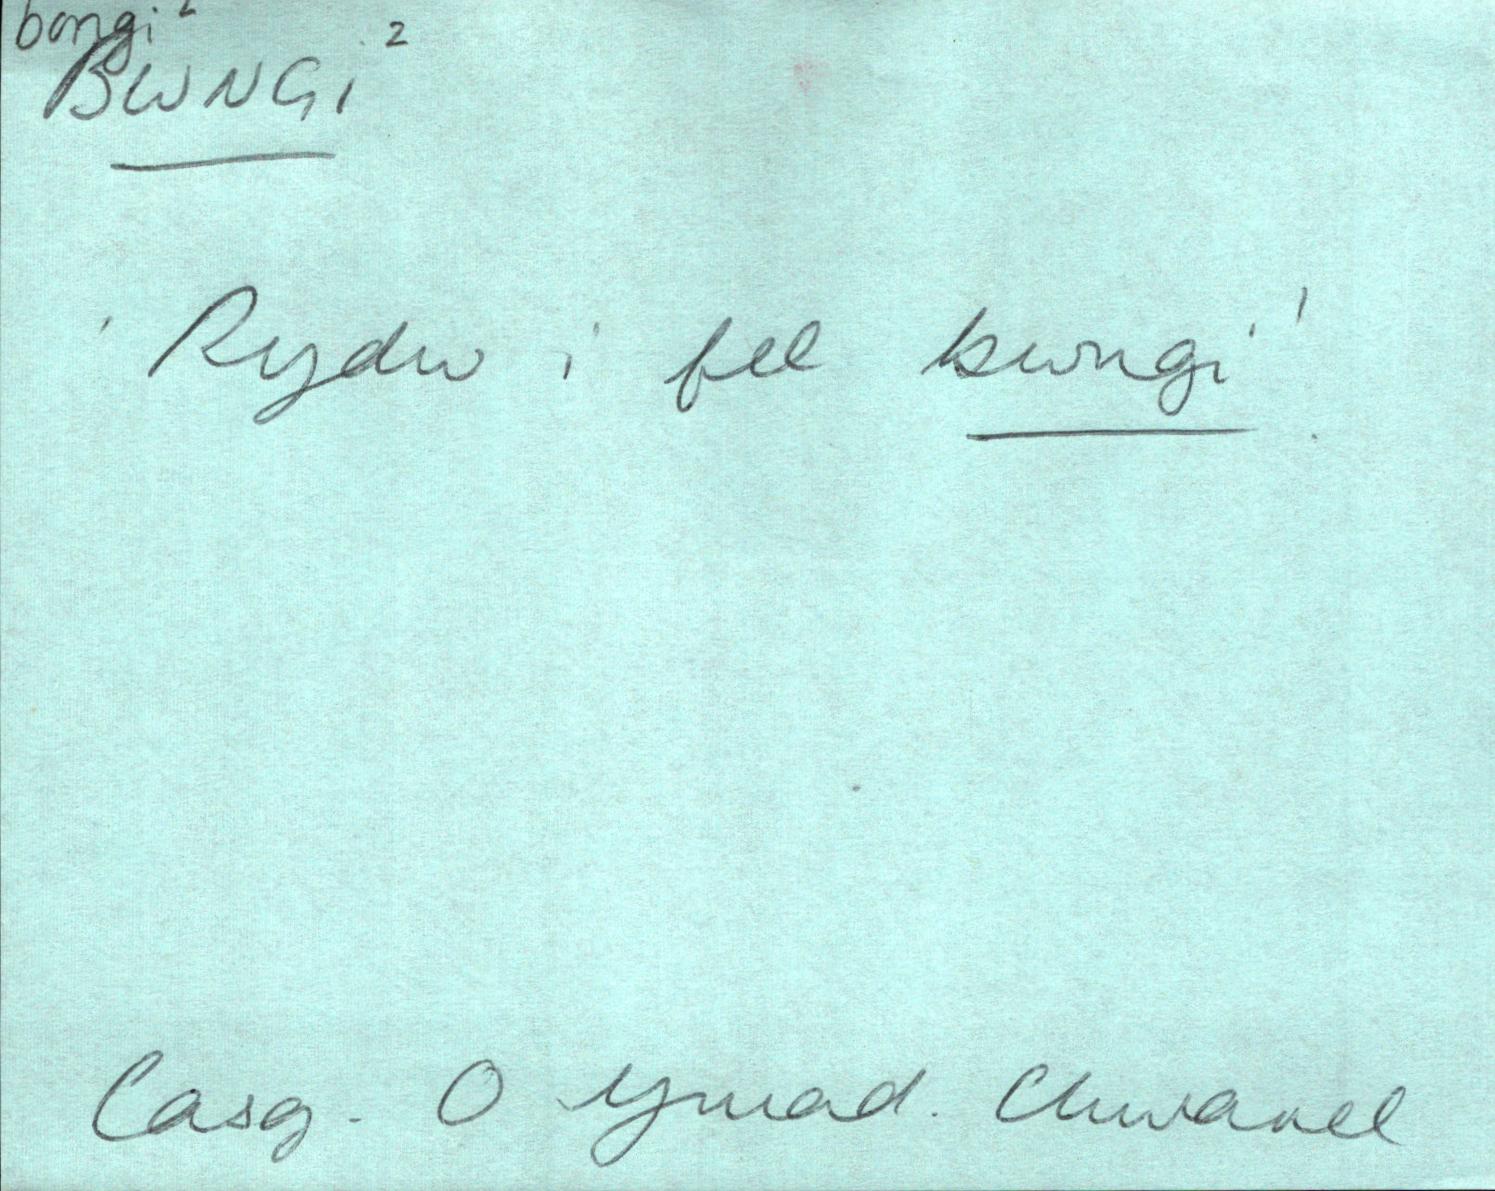 bongi²
BWNGI²
'Rydw i fel bwngi'.
Casg. O Ymad. Chwarel